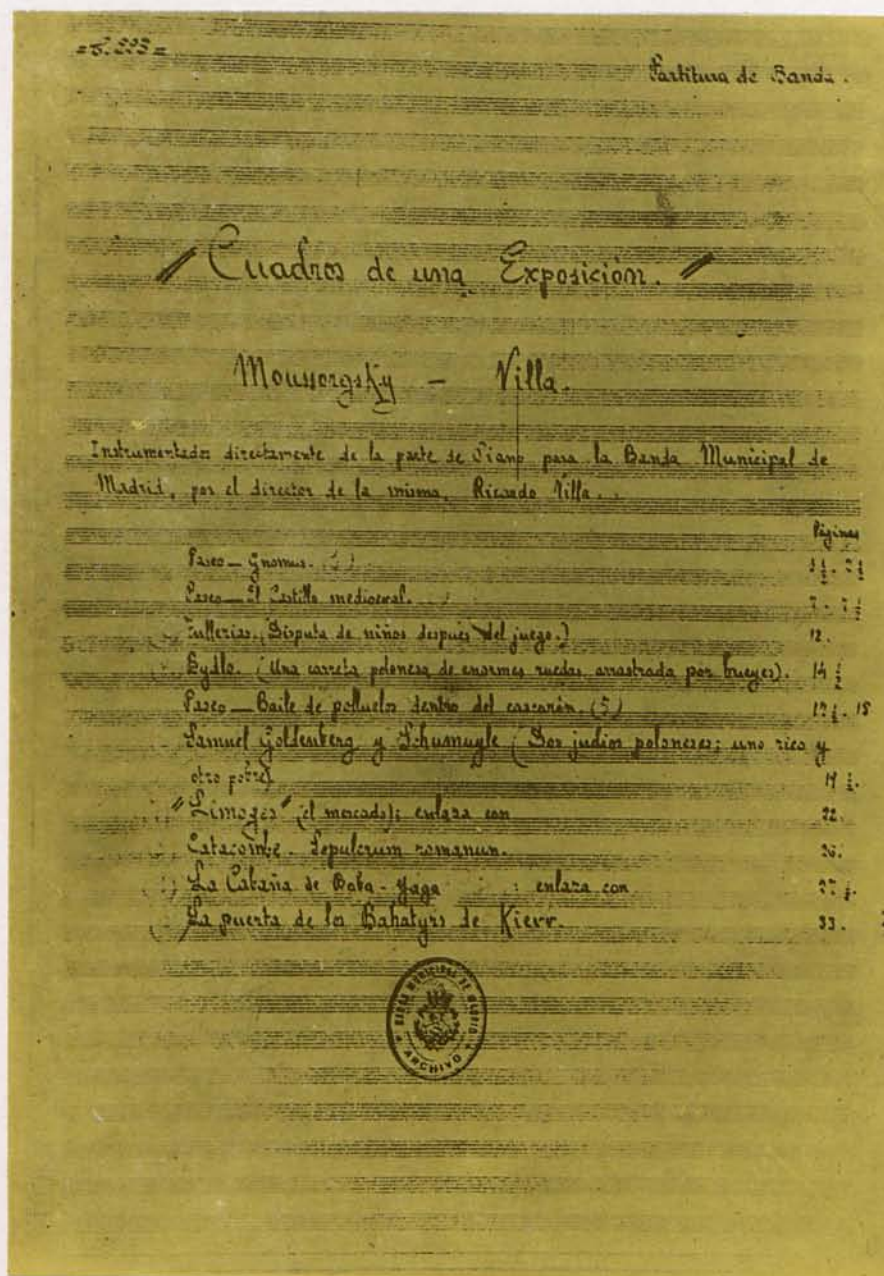 Partitura de Banda.
"Cuadros de una Exposición."
Moussorgsky - Villa.
Instrumentados directamente de la parte de Piano para la Banda Municipal de
Madrid, por el director de la misma, Ricardo Villa.
Páginas
Paseo - Gnomus.
Paseo - El Castillo medioeval.
Tullerias. (Disputa de niños despues del juego.) 12.
Bydlo. (Una carreta polonesa de enormes ruedas arrastrada por bueyes). 14 ½
Paseo - Baile de polluelos dentro del cascarón. (5) 17½. 18
Samuel Goldenberg y Schumuyle (Dos judios poloneses; uno rico y
otro pobre) 19 ½.
"Limoges" (el mercado); enlaza con 22.
Catacombe. Sepulcrum romanun. 26.
La Cabaña de Baba-Yaga : enlaza con 27 ½.
La puerta de los Bahatyrs de Kiew. 33.
BANDA MUNICIPAL DE MADRID
ARCHIVO